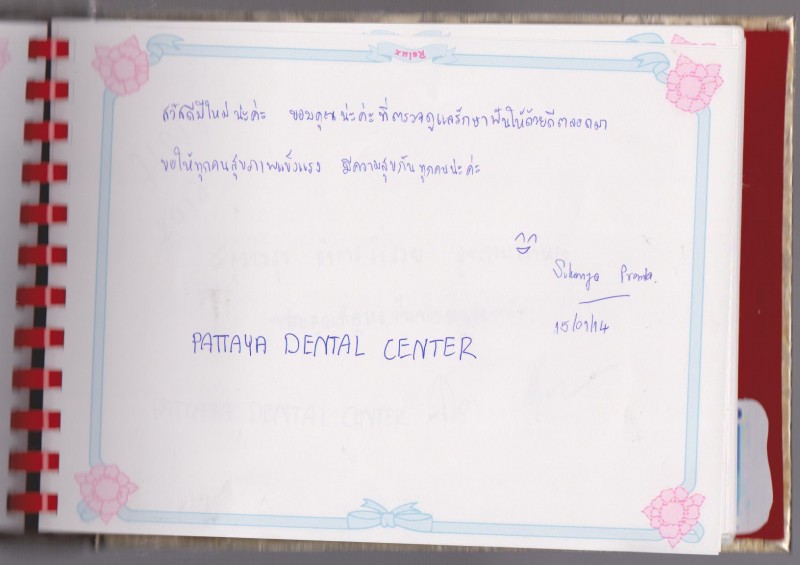 Relux
สวัสดีปีใหม่น่ะค่ะ ขอบคุณน่ะค่ะที่ตรวจดูแลรักษาฟันให้ด้วยดีตลอดมา
ขอให้ทุกคนสุขภาพแข็งแรง มีความสุขกันทุกคนน่ะค่ะ
15/01/14
PATTAYA DENTAL CENTER